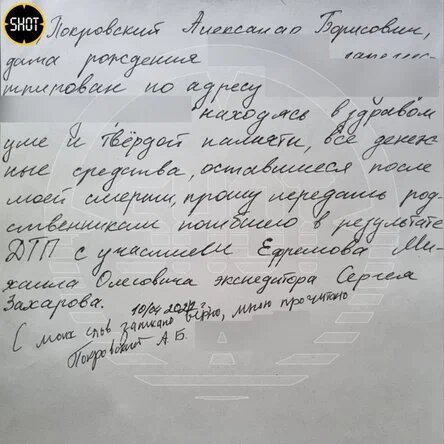 SHOT
Покровский Александр Борисович,
дата рождения
трирован по адресу
находясь в здравом
уме и твёрдой памяти, все денеж-
ные средства, оставшиеся после
моей смерти, прошу передать род-
ственникам погибшего в результате
ДТП с участием Ефремова Ми-
хаила Олеговича экспедитора Сергея
Захарова.
10/04 2022г.
С моих слов записано верно, мною прочитано
Покровский А.Б.